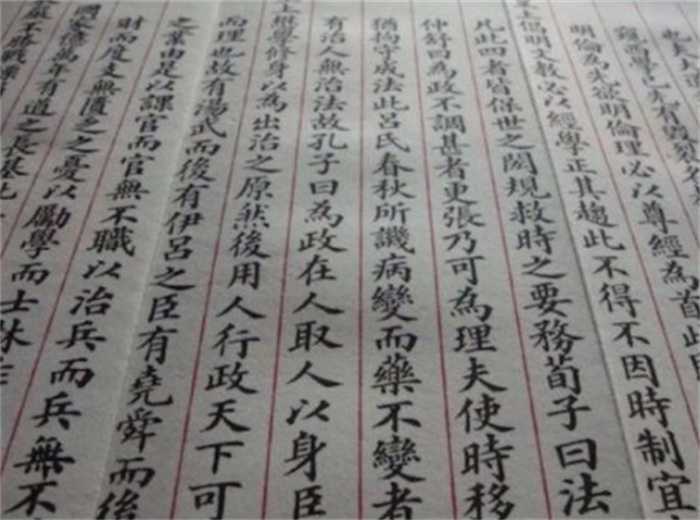 有毀
明倫為先欲明倫理必以尊經為首此
上倡明大教必以經學正其趨此不得不因時制宜
凡此四者皆保世之閎規救時之要務荀子曰法
仲舒曰為政不調甚者更張乃可為理夫使時移
猶拘守成法此呂氏春秋所譏病變而藥不變者
有治人無治法故孔子曰為政在人取人以身臣
上懋學修身以為出治之原然後用人行政天下可
而理也故有湯武而後有伊呂之臣有堯舜而後
之業由是以課官而官無不職以治兵而兵無不
財而度支無匱乏之憂以勵學而士林
國家億萬年有道之長基此